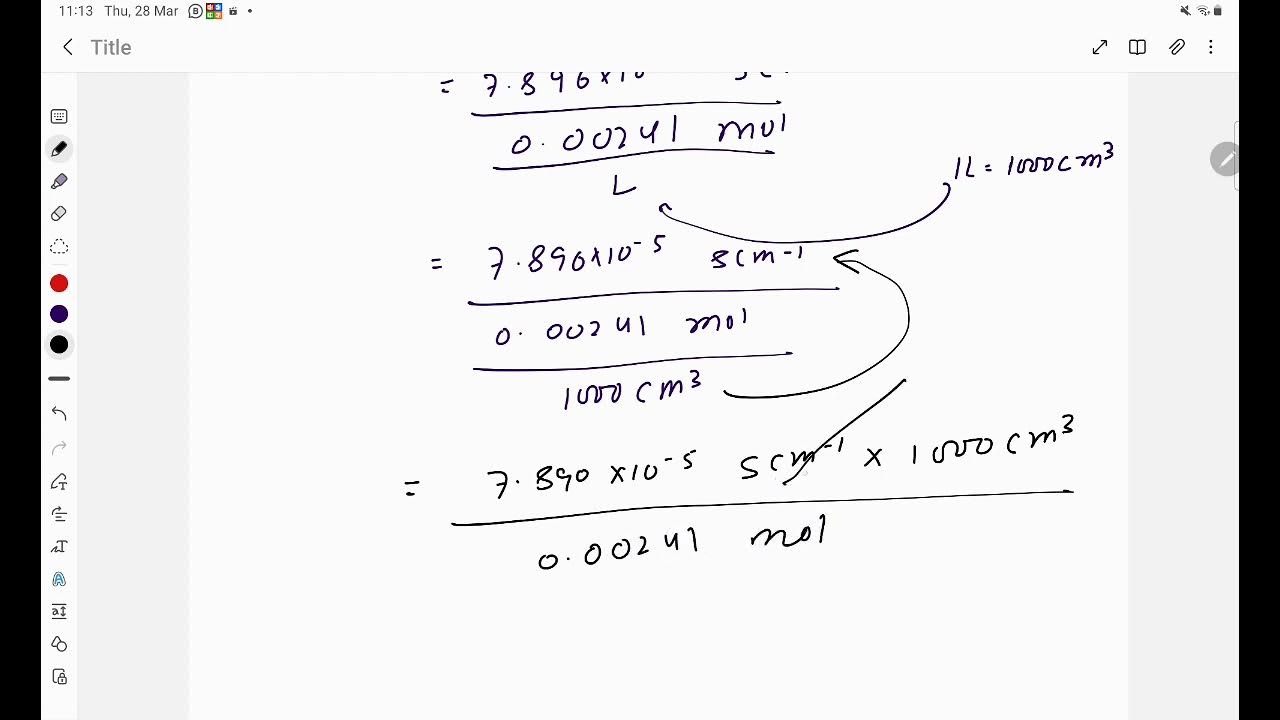 11:13 Thu, 28 Mar
Title
= 7.896×10
0.00241 mol
L
1L = 1000cm³
= 7.890×10⁻⁵ Scm⁻¹
0.00241 mol
1000 cm³
= 7.890 ×10⁻⁵ Scm⁻¹ × 1000 cm³
0.00241 mol